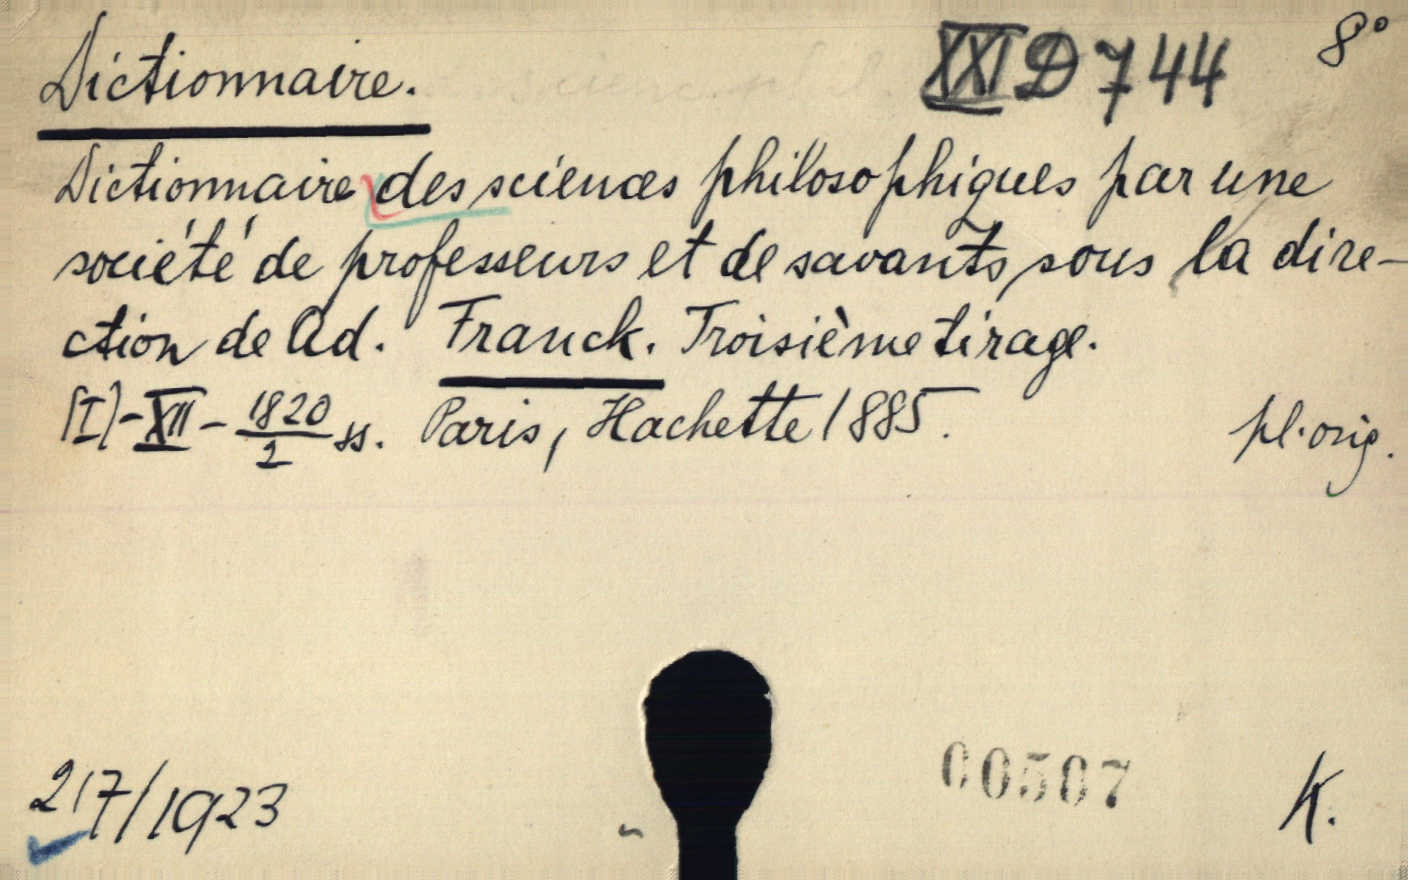 Dictionnaire. XXI D 744 8°
Dictionnaire des sciences philosophiques par une
société de professeurs et de savants, sous la dire-
ction de Ad. Franck. Troisième tirage.
[I]-XII-1820/2 ss. Paris, Hachette 1885. pl. orig.
00507
217/1923 K.